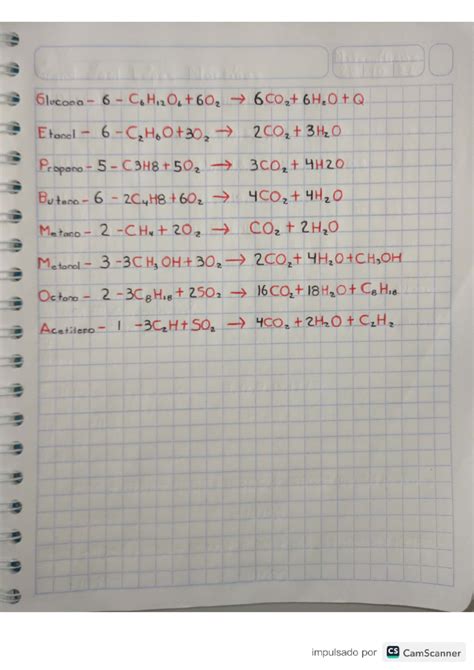 Glucosa - 6 - C₆H₁₂O₆ + 6O₂ → 6CO₂ + 6H₂O + Q
Etanol - 6 - C₂H₆O + 3O₂ → 2CO₂ + 3H₂O
Propano - 5 - C3H8 + 5O₂ → 3CO₂ + 4H2O
Buteno - 6 - 2C₄H8 + 6O₂ → 4CO₂ + 4H₂O
Metano - 2 - CH₄ + 2O₂ → CO₂ + 2H₂O
Metanol - 3 - 3CH₃OH + 3O₂ → 2CO₂ + 4H₂O + CH₃OH
Octano - 2 - 3C₈H₁₈ + 25O₂ → 16CO₂ + 18H₂O + C₈H₁₈
Acetileno - 1 - 3C₂H + 5O₂ → 4CO₂ + 2H₂O + C₂H₂
impulsado por CS CamScanner